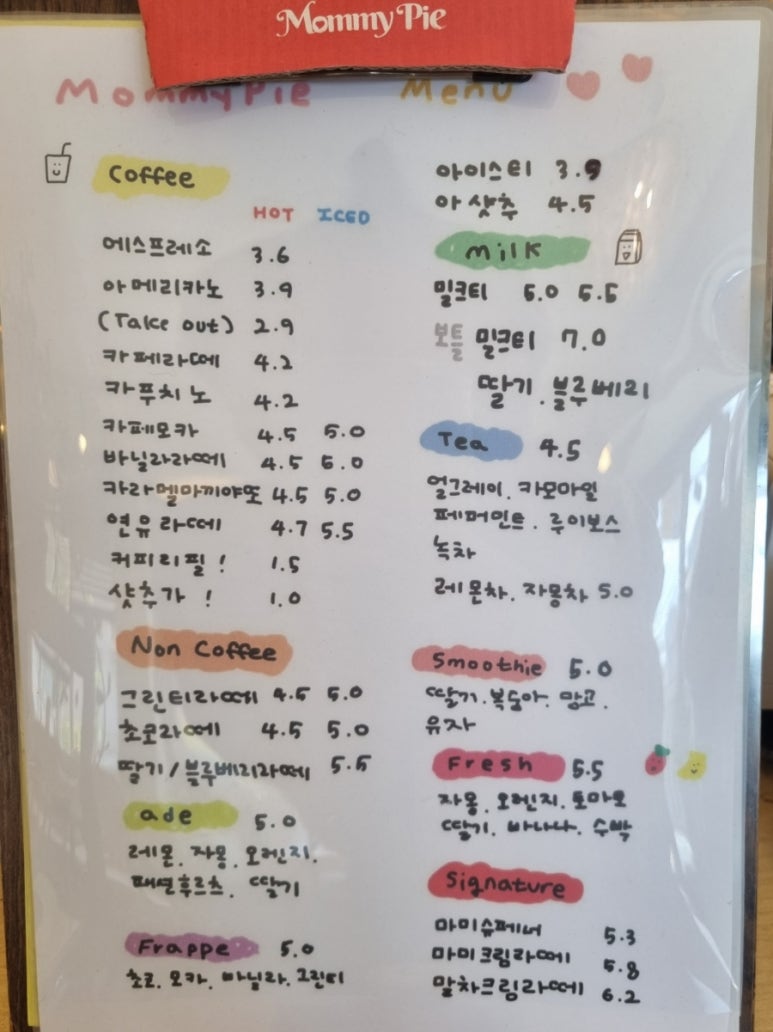 Mommy Pie
MommyPie Menu
Coffee
HOT ICED
에스프레소 3.6
아메리카노 3.9
(Take out) 2.9
카페라떼 4.2
카푸치노 4.2
카페모카 4.5 5.0
바닐라라떼 4.5 5.0
카라멜마끼야또 4.5 5.0
연유라떼 4.7 5.5
커피리필! 1.5
샷추가! 1.0
Non Coffee
그린티라떼 4.5 5.0
초코라떼 4.5 5.0
딸기/블루베리라떼 5.5
ade 5.0
레몬. 자몽. 오렌지.
패션후르츠. 딸기
Frappe 5.0
초코. 모카. 바닐라. 그린티
아이스티 3.9
아샷추 4.5
Milk
밀크티 5.0 5.5
보틀 밀크티 7.0
딸기. 블루베리
Tea 4.5
얼그레이. 카모마일
페퍼민트. 루이보스
녹차
레몬차. 자몽차 5.0
Smoothie 5.0
딸기. 복숭아. 망고.
유자
Fresh 5.5
자몽. 오렌지. 토마토
딸기. 바나나. 수박
Signature
마미슈페너 5.3
마미크림라떼 5.8
말차크림라떼 6.2